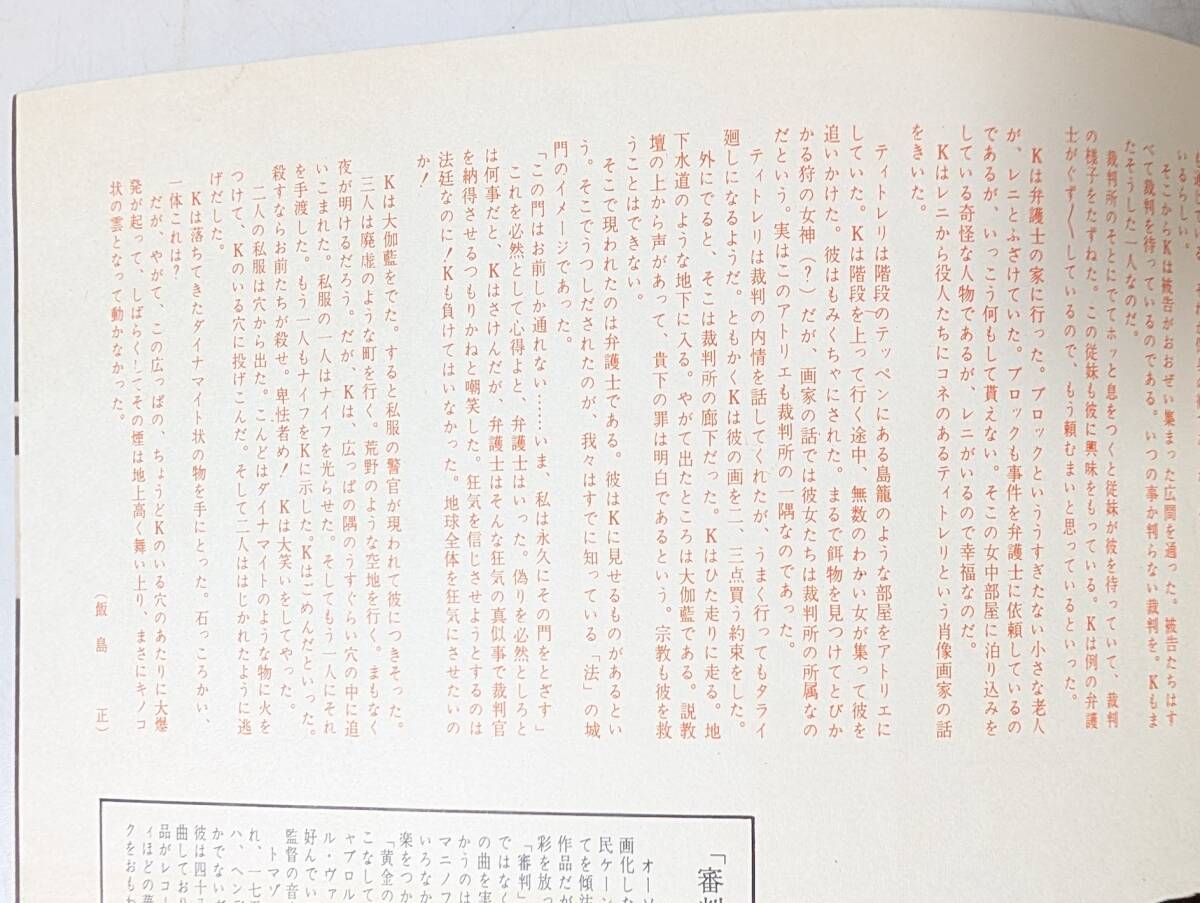 いるらしい。
そこからKは被告がおおぜい集まった広間を通った。被告たちはす
べて裁判を待っているのである。いつの事か判らない裁判を。Kもま
たそうした一人なのだ。
裁判所のそとにでてホッと息をつくと従妹が彼を待っていて、裁判
の様子をたずねた。この従妹も彼に興味をもっている。Kは例の弁護
士がぐず〳〵しているので、もう頼むまいと思っているといった。
Kは弁護士の家に行った。ブロックといううすぎたない小さな老人
が、レニとふざけていた。ブロックも事件を弁護士に依頼しているの
であるが、いっこう何もして貰えない。そこの女中部屋に泊り込みを
している奇怪な人物であるが、レニがいるので幸福なのだ。
Kはレニから役人たちにコネのあるティトレリという肖像画家の話
をきいた。
ティトレリは階段のテッペンにある島籠のような部屋をアトリエに
していた。Kは階段を上って行く途中、無数のわかい女が集って彼を
追いかけた。彼はもみくちゃにされた。まるで餌物を見つけてとびか
かる狩の女神（？）だが、画家の話では彼女たちは裁判所の所属なの
だという。実はこのアトリエも裁判所の一隅なのであった。
ティトレリは裁判の内情を話してくれたが、うまく行ってもタライ
廻しになるようだ。ともかくKは彼の画を二、三点買う約束をした。
外にでると、そこは裁判所の廊下だった。Kはひた走りに走る。地
下水道のような地下に入る。やがて出たところは大伽藍である。説教
壇の上から声があって、貴下の罪は明白であるという。宗教も彼を救
うことはできない。
そこで現われたのは弁護士である。彼はKに見せるものがあるとい
う。そこでうつしだされたのが、我々はすでに知っている「法」の城
門のイメージであった。
「この門はお前しか通れない……いま、私は永久にその門をとざす」
これを必然として心得よと、弁護士はいった。偽りを必然としろと
は何事だと、Kはさけんだが、弁護士はそんな狂気の真似事で裁判官
を納得させるつもりかねと嘲笑した。狂気を信じさせようとするのは
法廷なのに！Kも負けてはいなかった。地球全体を狂気にさせたいの
か！
Kは大伽藍をでた。すると私服の警官が現われて彼につきそった。
三人は廃虚のような町を行く。荒野のような空地を行く。まもなく
夜が明けるだろう。だが、Kは、広っぱの隅のうすぐらい穴の中に追
いこまれた。私服の一人はナイフを光らせた。そしてもう一人にそれ
を手渡した。もう一人もナイフをKに示した。Kはごめんだといった。
殺すならお前たちが殺せ。卑怯者め！　Kは大笑いをしてやった。
二人の私服は穴から出た。こんどはダイナマイトのような物に火を
つけて、Kのいる穴に投げこんだ。そして二人ははじかれたように逃
げだした。
Kは落ちてきたダイナマイト状の物を手にとった。石っころかい、
一体これは？
だが、やがて、この広っぱの、ちょうどKのいる穴のあたりに大爆
発が起って、しばらくしてその煙は地上高く舞い上り、まさにキノコ
状の雲となって動かなかった。
（飯島　正）
「審判
オーソ
画化した
民ケーン
てを傾注
作品だが
彩を放っ
「審判」
ではなく
の曲を実
かうのは
マニノフ
いろなか
楽をつか
「黄金の
こなして
ャブロル
ル・ヴァ
好んでい
監督の音
トマゾ
れ、一七
ハ、ヘンデ
かでないが
彼は四十
曲してお
品がレコー
ィほどの
クをおも